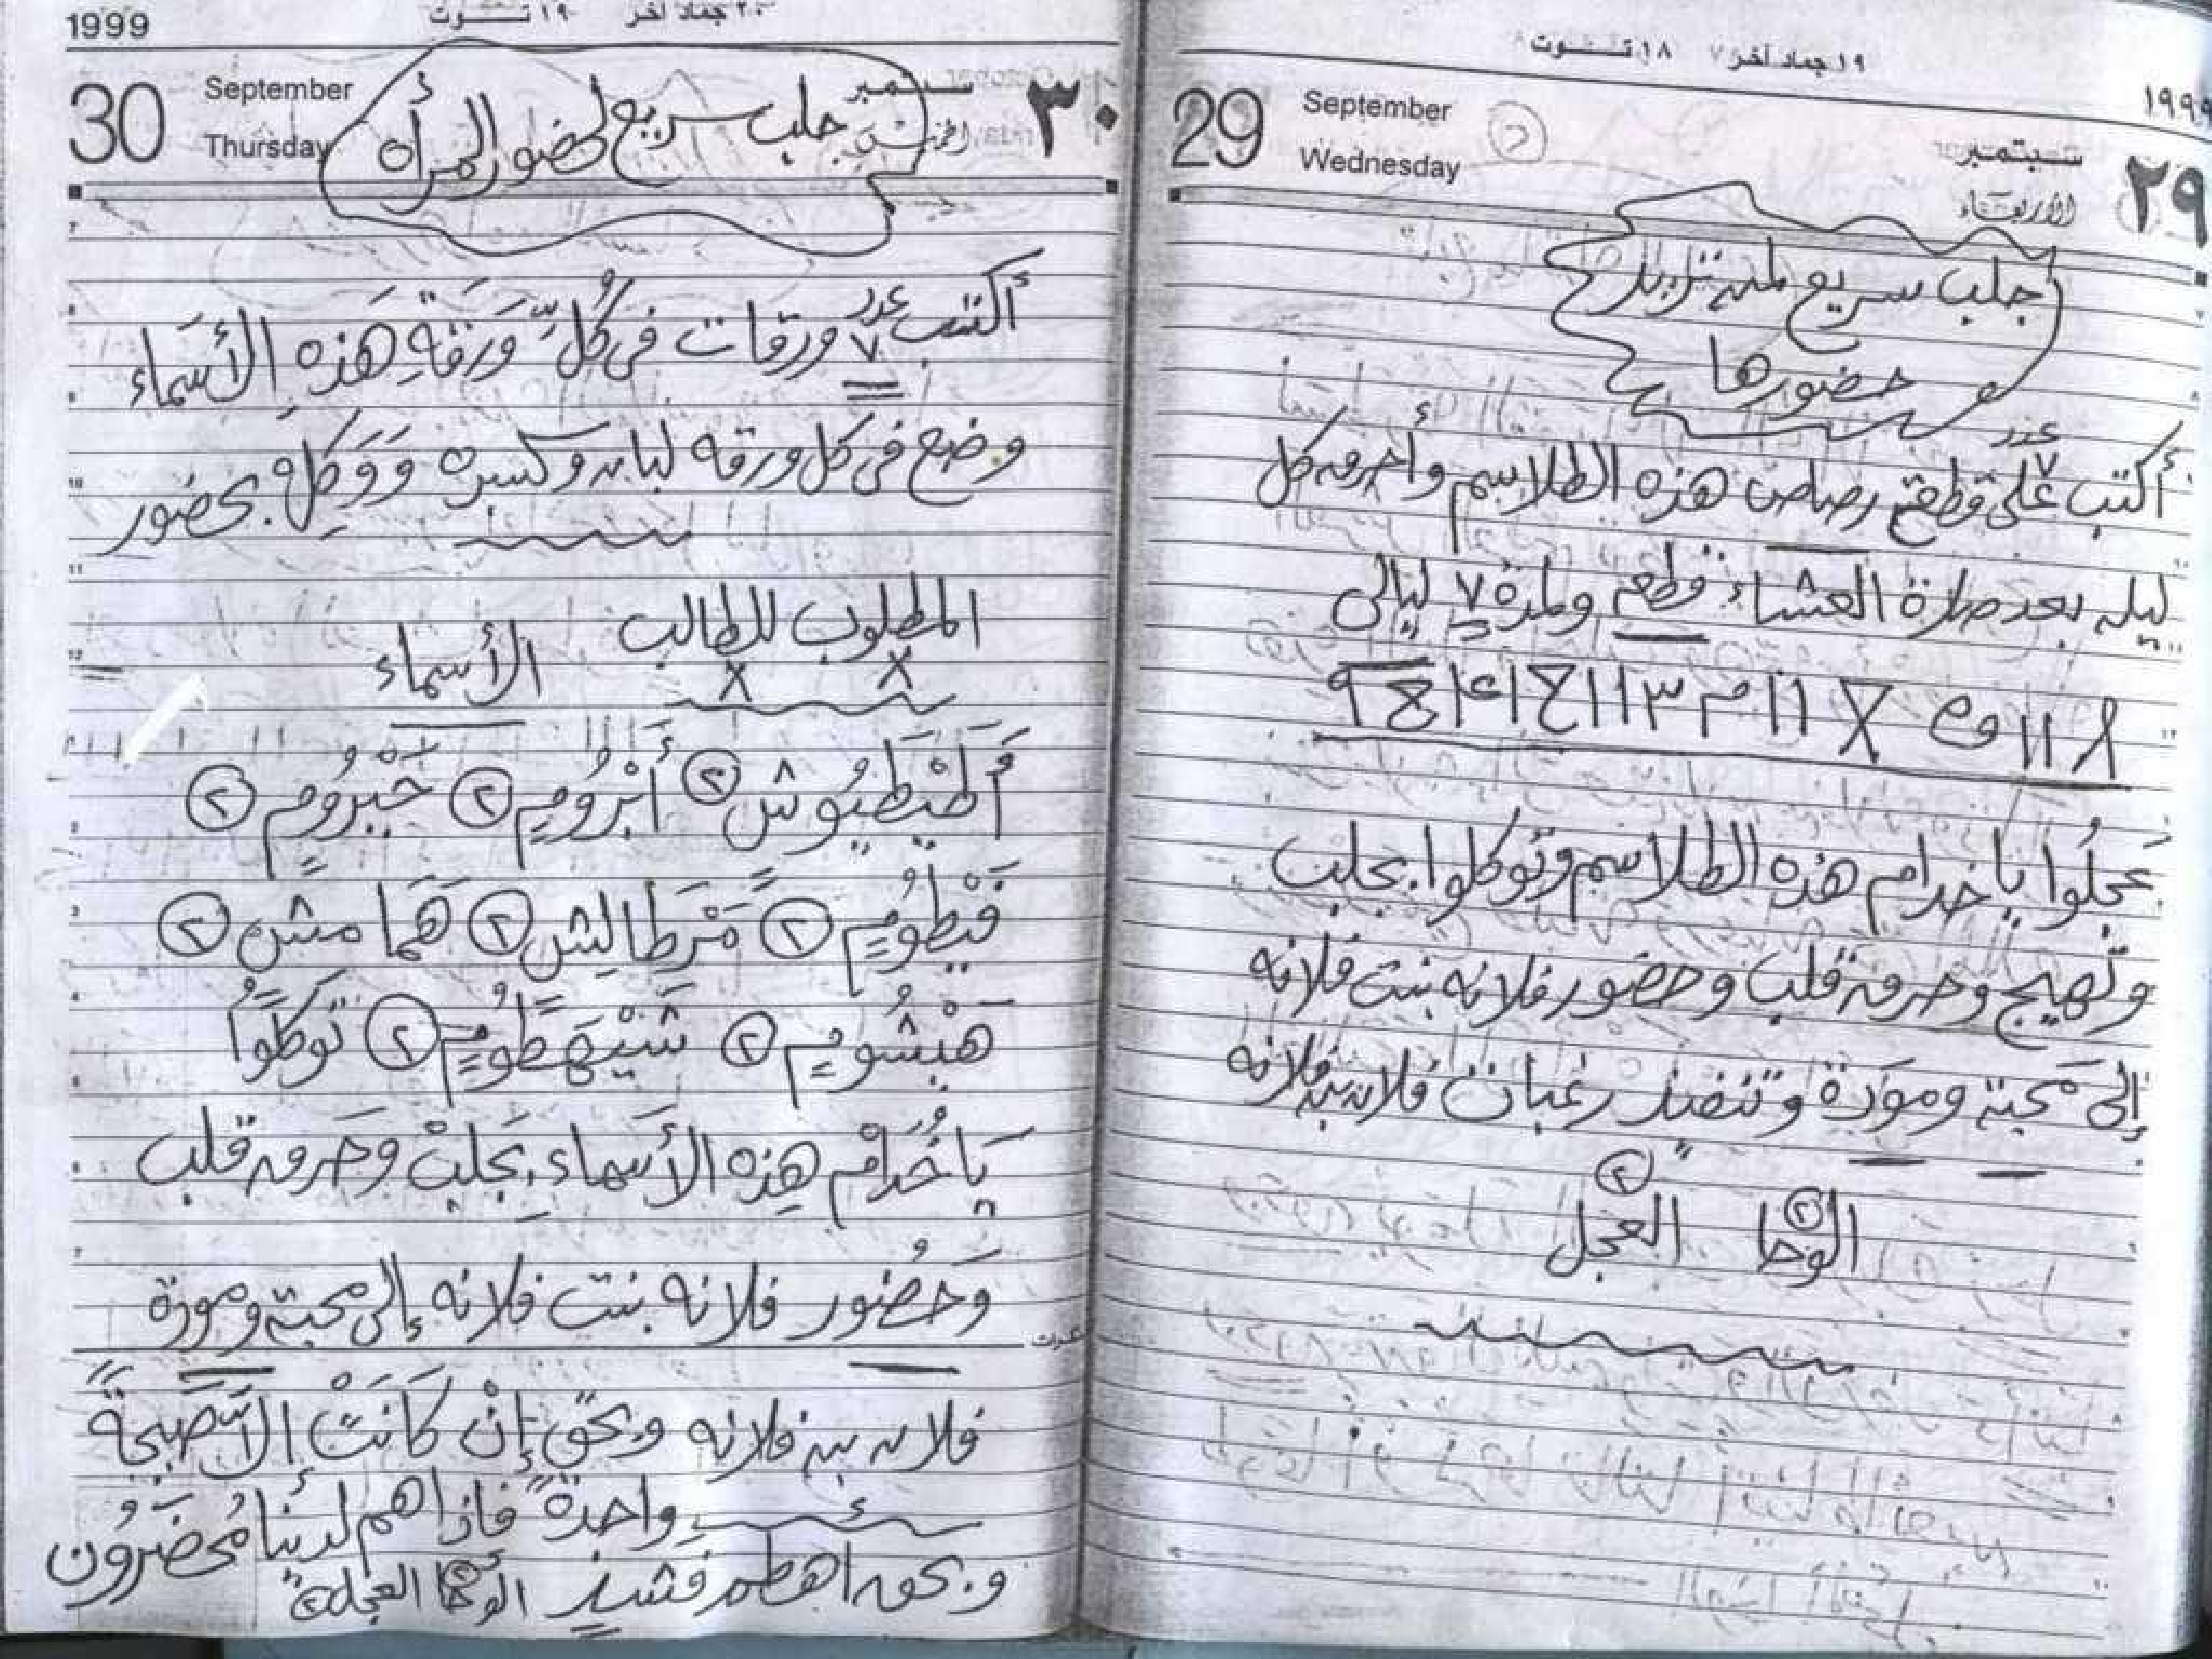 ١٩ جماد آخر ١٨ تـــوت
1999
29 September سبتمبر ٢٩
Wednesday الأربعاء
جلب سريع لمن تريد
حضورها
أكتب على عدد ٧ قطع رصاص هذه الطلاسم وأحرق كل
ليله بعد صلاة العشاء قطعه ولمدة ٧ ليالى
عجلوا ياخدام هذه الطلاسم وتوكلوا بجلب
وتهيج وحرق قلب وحضور فلانه بنت فلانه
إلى محبة ومودة وتنفيذ رغبات فلان بن فلانه
الوحا ٢ العجل ٢
1999 ٢٠ جماد آخر ١٩ تـــوت
30 September سبتمبر ٣٠
Thursday الخميس
جلب سريع لحضور المرأه
أكتب عدد ٧ ورقات فى كُلِّ وَرَقَةِ هَذِهِ الأَسْمَاء
وضع فى كل ورقه لبان وكسبره وَوَكِلْ بحضور
المطلوب للطالب الأسماء
أَطْيَطْيُوش ٢ أَبْرُومٍ ٢ خَيْرُومٍ ٢
فَيْطُومٍ ٢ مَرْطَالِش ٢ هَمَا مش ٢
هَيْشُومٍ ٢ شَيْهَطُومٍ ٢ تَوَكَّلُوا
يَا خُدَامْ هِذِه الأَسْمَاءِ بَجَلْبْ وَحَرق قلب
وَحَضُور فلانه بنت فلانه إلى محبة ومودة
فلان بن فلانه وبحق إِنْ كَانَتْ إلاَّ صَيْحَةً
واحِدَةً فإذا هم لدينا مُحْضَرُون
وبحق اهطم فشند الوحا ٢ العجل ٢